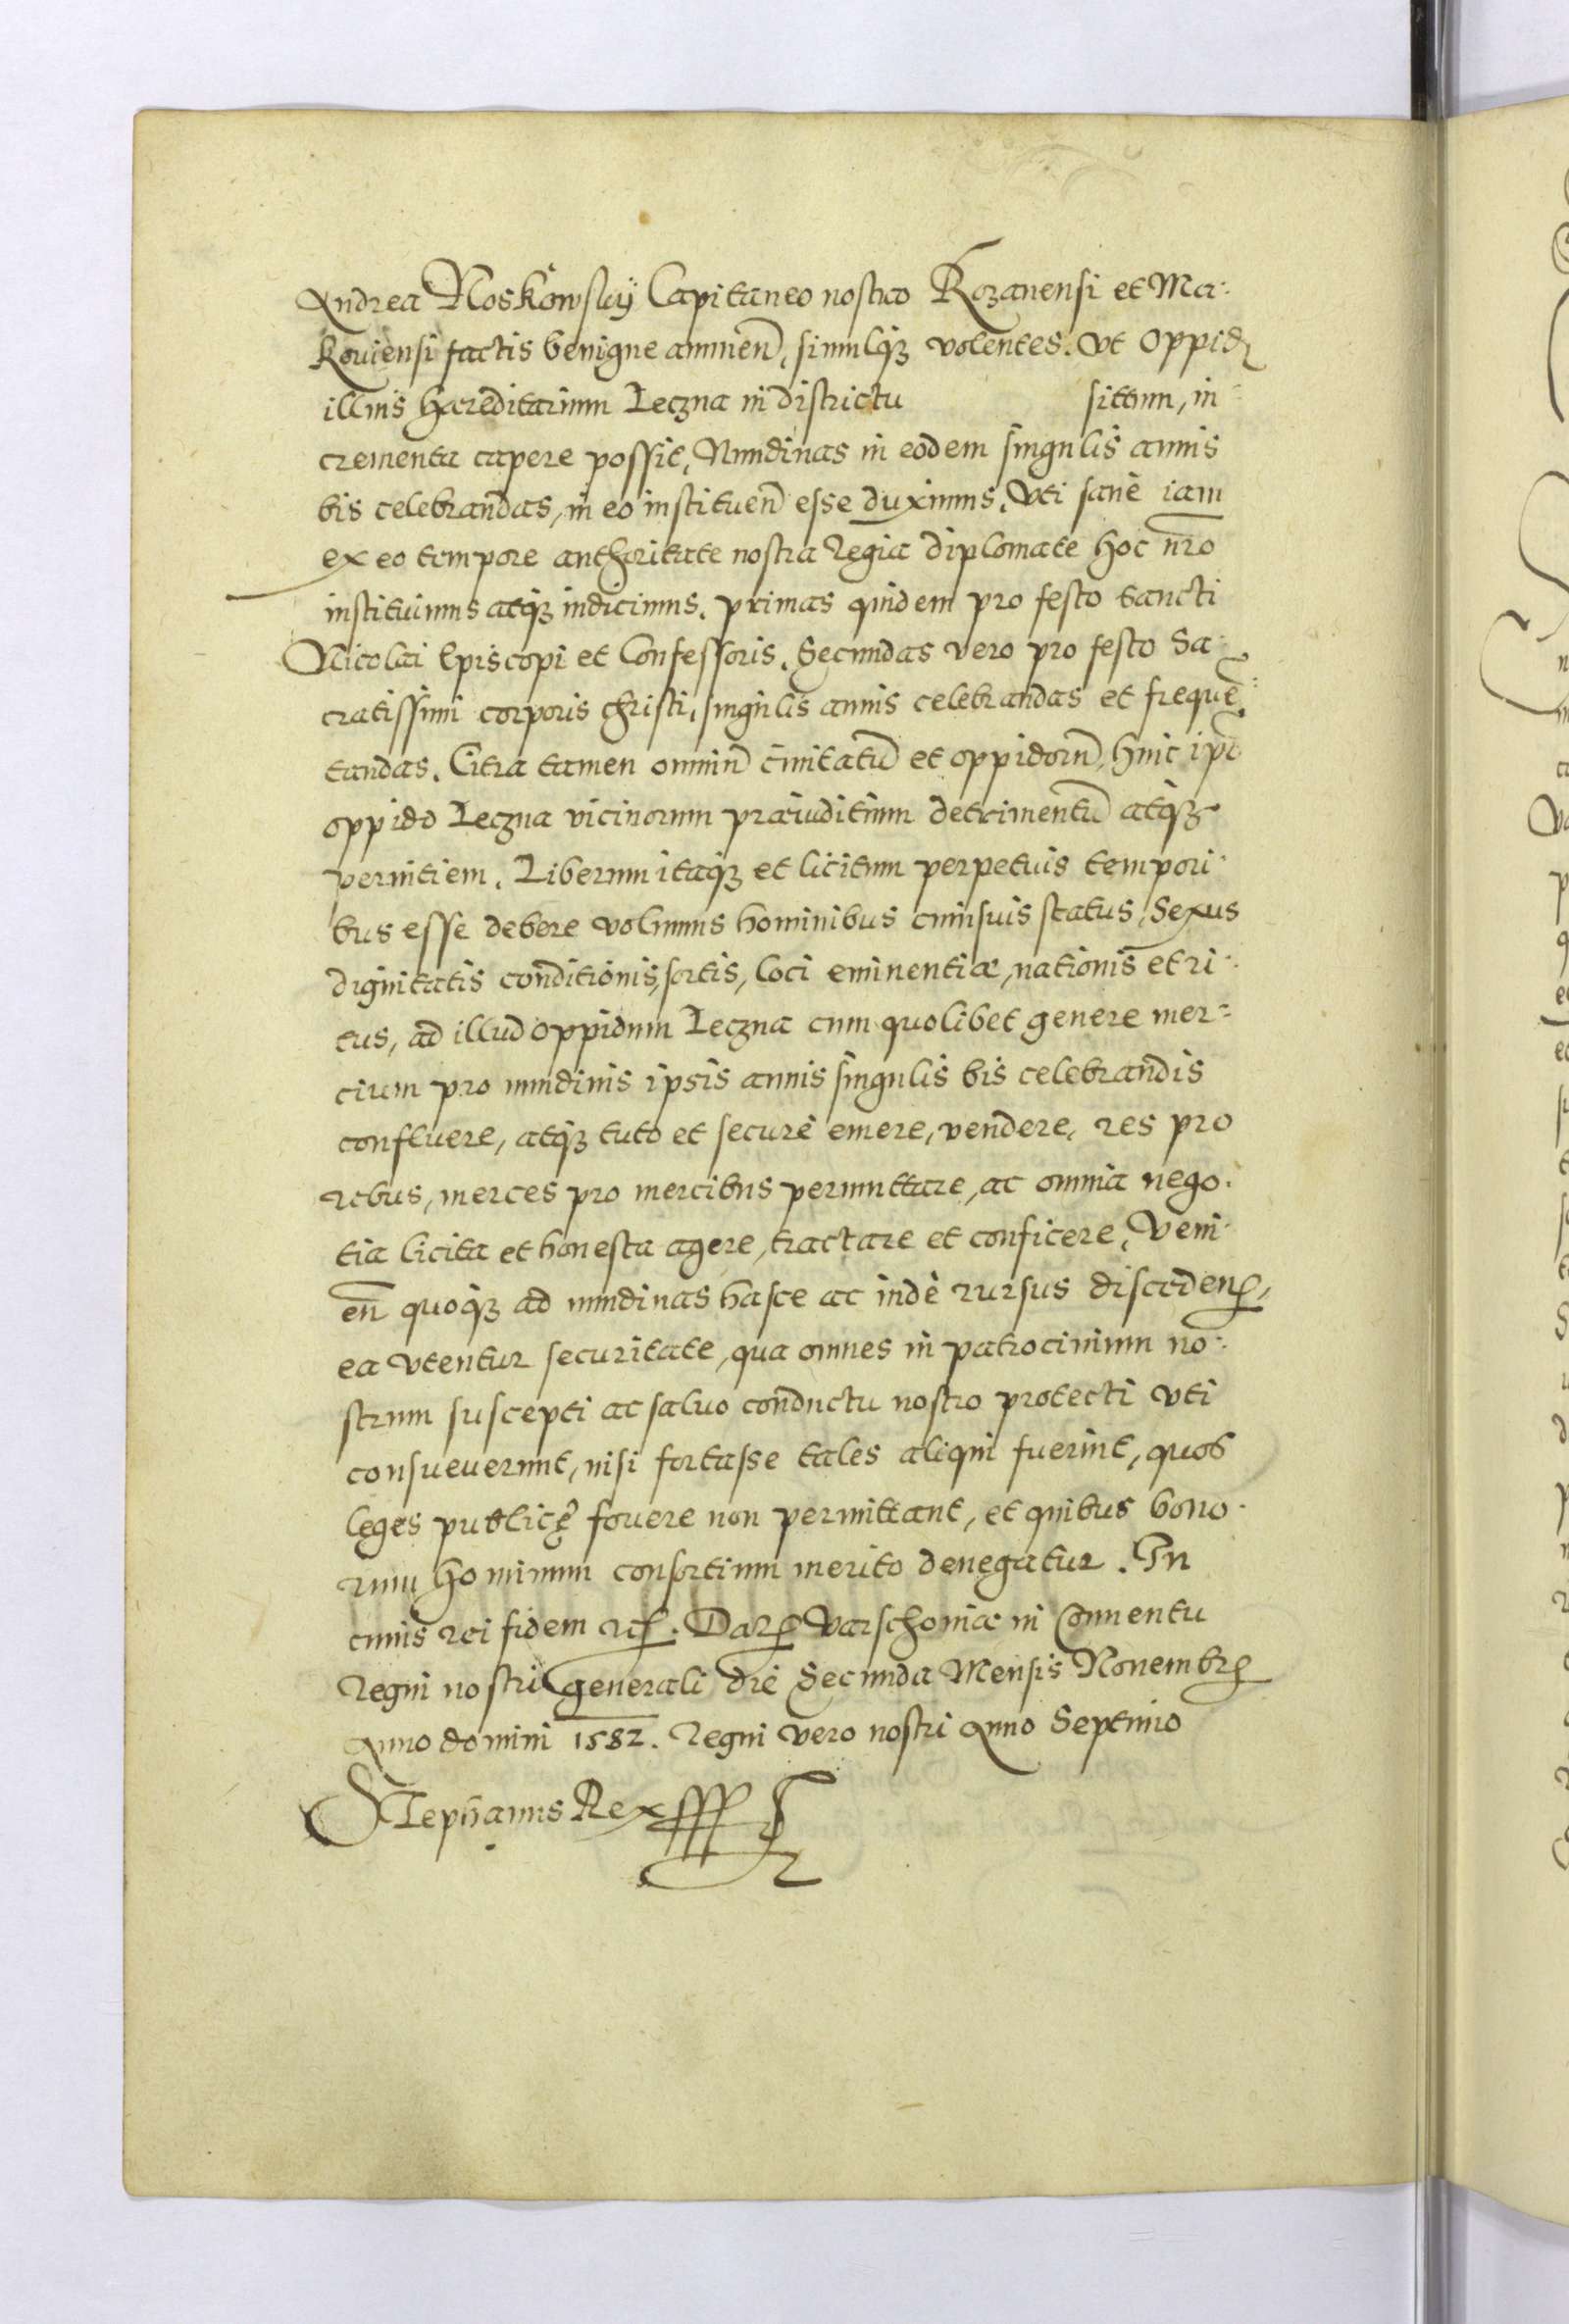 Andrea Noskowskij Capitaneo nostro Rozanensi et Ma-
Kouiensi factis benigne annuen̄, simulq3 volentes. Vt Oppid
illius hæreditarium Leczna in districtu situm, in-
crementa capere possit, Nundinas in eodem singulis annis
bis celebrandas, in eo instituen̄ esse duximus, Vti sanè iam
ex eo tempore authoritate nostra Regia diplomate hoc nr̄o
instituimus atq3 indicimus. primas quidem pro festo sancti
Nicolai Episcopi et Confessoris. Secundas vero pro festo Sa-
cratissimi corporis christi, singulis annis celebrandas et frequē-
tandas. Citra tamen omniū ciuitatū et oppidorū, huic ip̄o
oppido Leczna vicinorum præiuditium detrimentū atq3
pernitiem. Liberum itaq3 et licitum perpetuis tempori-
bus esse debere volumus hominibus cuiusuis status, Sexus
dignitatis conditionis, sortis, loci eminentiæ, nationis et ri-
tus, ad illud oppidum Leczna cum quolibet genere mer-
cium pro nundinis ipsis annis singulis bis celebrandis
confluere, atq3 tuto et securè emere, vendere, res pro
rebus, merces pro mercibus permuttare, ac omnia nego-
tia licita et honesta agere, tractare et conficere, Veni-
en̄ quoq3 ad nundinas hasce ac indè rursus disceden̄,
ea vtentur securitate, qua omnes in patrocinium no-
strum suscepti ac saluo conductu nostro protecti vti
consueuerunt, nisi fortasse tales aliqui fuerint, quos
leges publicę fouere non permittant, et quibus bono-
rum hominum consortium merito denegatur. In
cuius rei fidem etc. Dat Varschouiæ in Conuentu
Regni nostri generali die Secunda Mensis Nouembr
Anno domini 1582. Regni vero nostri Anno Septimo
Stephanus Rex